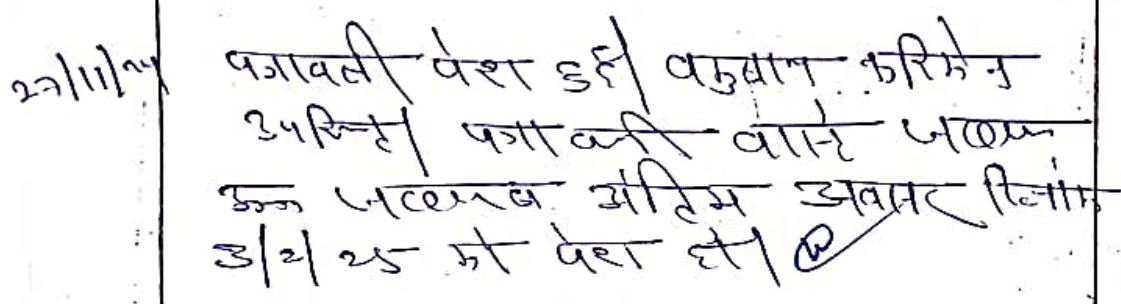 27/11/24 पत्रावली पेश हुई। वकुलान फरिकेन
उपस्थित। पत्रावली वास्ते जवाब
अंतिम अवसर दिनांक
3/2/25 को पेश हो।